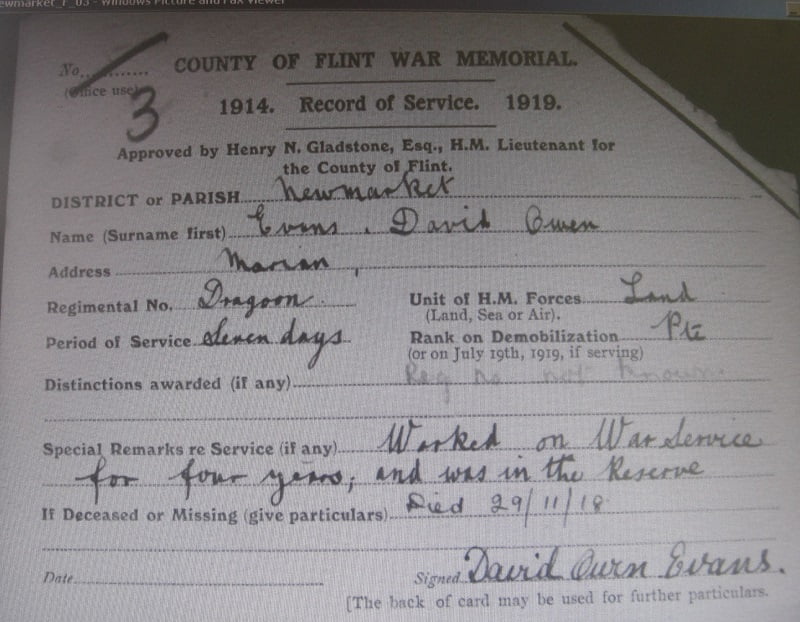 ewmarker_F_03 - Windows Picture and Fax Viewer
No. COUNTY OF FLINT WAR MEMORIAL.
(Office use)
3
1914. Record of Service. 1919.
Approved by Henry N. Gladstone, Esq., H.M. Lieutenant for
the County of Flint.
DISTRICT or PARISH Newmarket
Name (Surname first) Evans, David Owen
Address Marian,
Regimental No. Dragoon Unit of H.M. Forces Land
(Land, Sea or Air).
Period of Service Seven days Rank on Demobilization Pte
(or on July 19th, 1919, if serving)
Distinctions awarded (if any) Reg no not known
Special Remarks re Service (if any) Worked on War Service
for four years, and was in the Reserve
If Deceased or Missing (give particulars) Died 29/11/18
Date Signed David Owen Evans.
[The back of card may be used for further particulars.